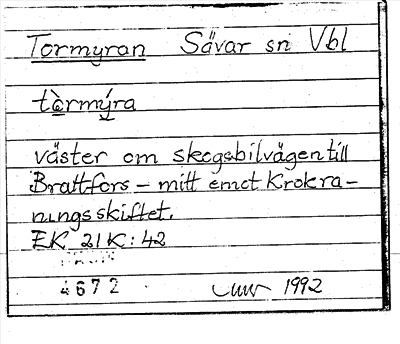 Tormyran Sävar sn Vbl
tòrmýra
väster om skogsbilvägen till
Brattfors – mitt emot Krokra-
ningsskiftet.
EK 21K:42
4672 1992